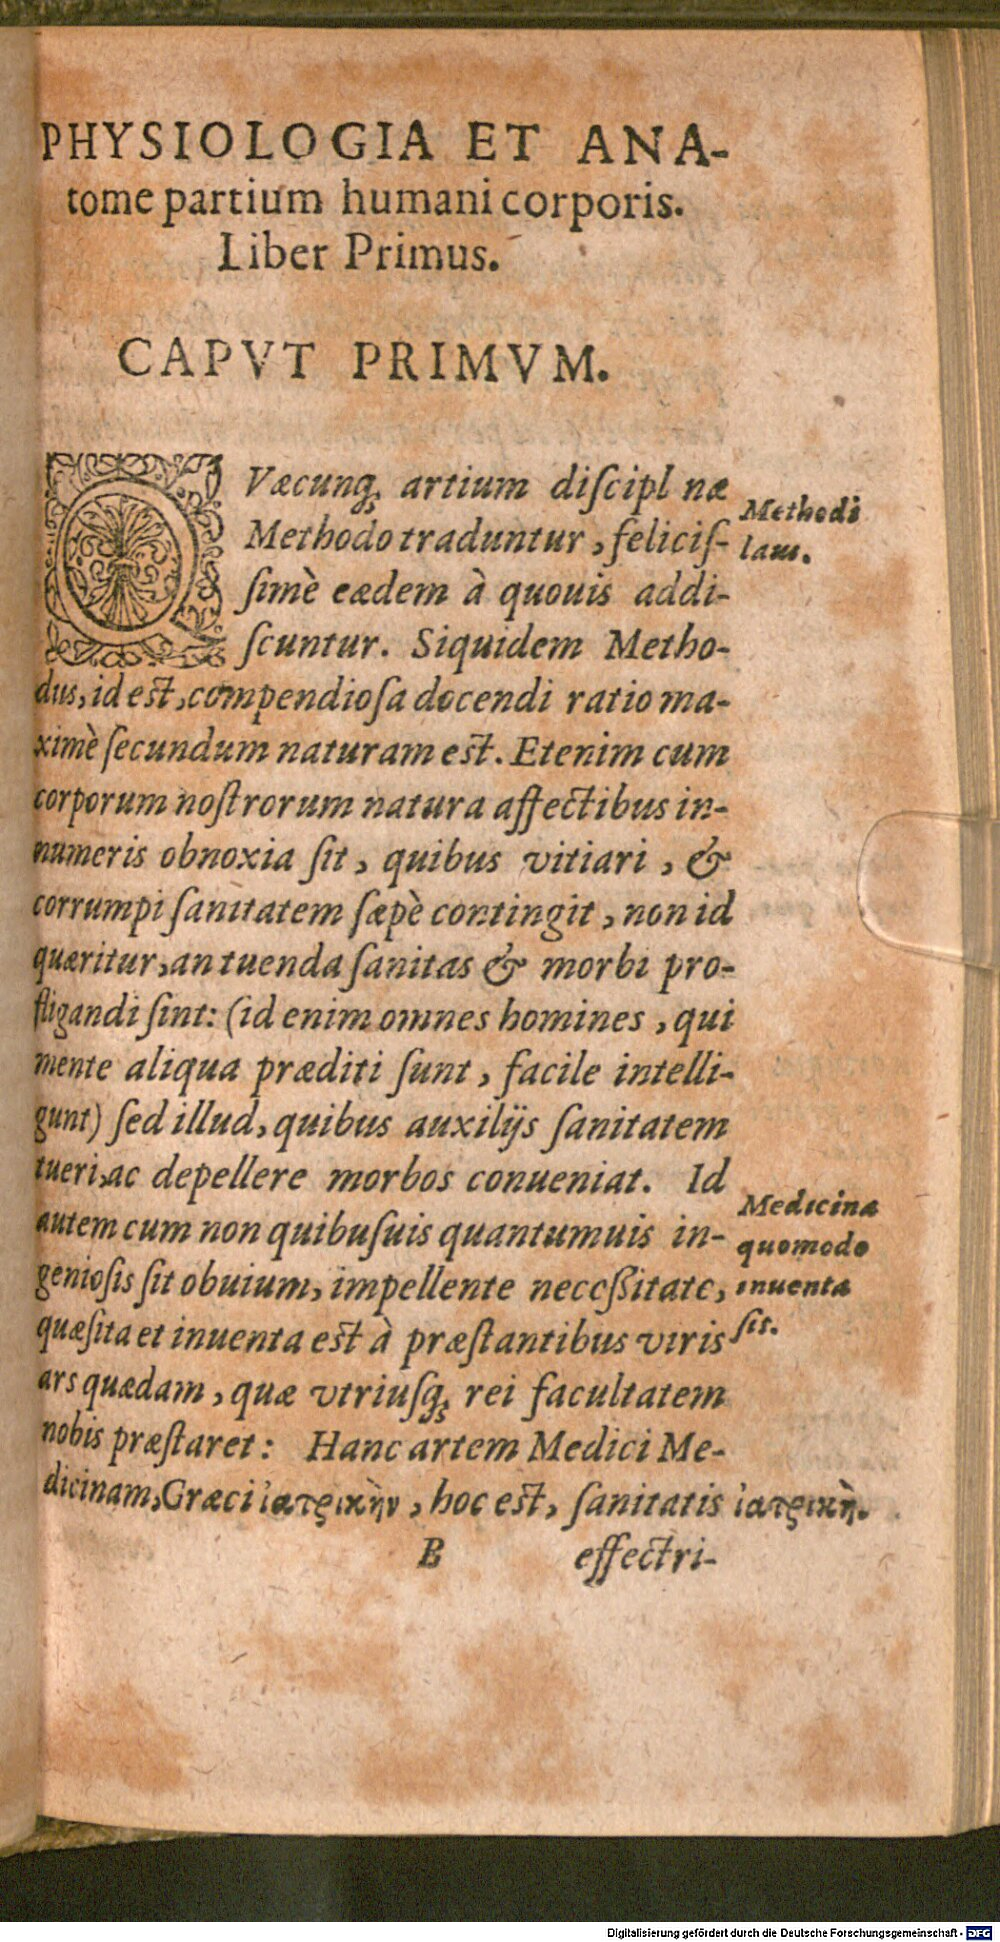 PHYSIOLOGIA ET ANA-
tome partium humani corporis.
Liber Primus.
CAPVT PRIMVM.
QVæcunq; artium diſcipl næ
Methodo traduntur, feliciſ-
ſimè eædem à quouis addi-
ſcuntur. Siquidem Metho-
dus, id est, compendioſa docendi ratio ma-
ximè ſecundum naturam est. Etenim cum
corporum noſtrorum natura affectibus in-
numeris obnoxia ſit, quibus vitiari, &
corrumpi ſanitatem ſæpè contingit, non id
quæritur, an tuenda ſanitas & morbi pro-
fligandi ſint: (id enim omnes homines, qui
mente aliqua præditi ſunt, facile intelli-
gunt) ſed illud, quibus auxilijs ſanitatem
tueri, ac depellere morbos conueniat. Id
autem cum non quibuſuis quantumuis in-
genioſis ſit obuium, impellente neceßitate,
quæſita et inuenta est à præſtantibus viris
ars quædam, quæ vtriuſq; rei facultatem
nobis præſtaret: Hanc artem Medici Me-
dicinam, Græci ἰατρικὴν, hoc est, ſanitatis
B effectri-
Methodi
laus.
Medicina
quomodo
inuenta
ſit.
ἰατρικὴ.
Digitalisierung gefördert durch die Deutsche Forschungsgemeinschaft - DFG